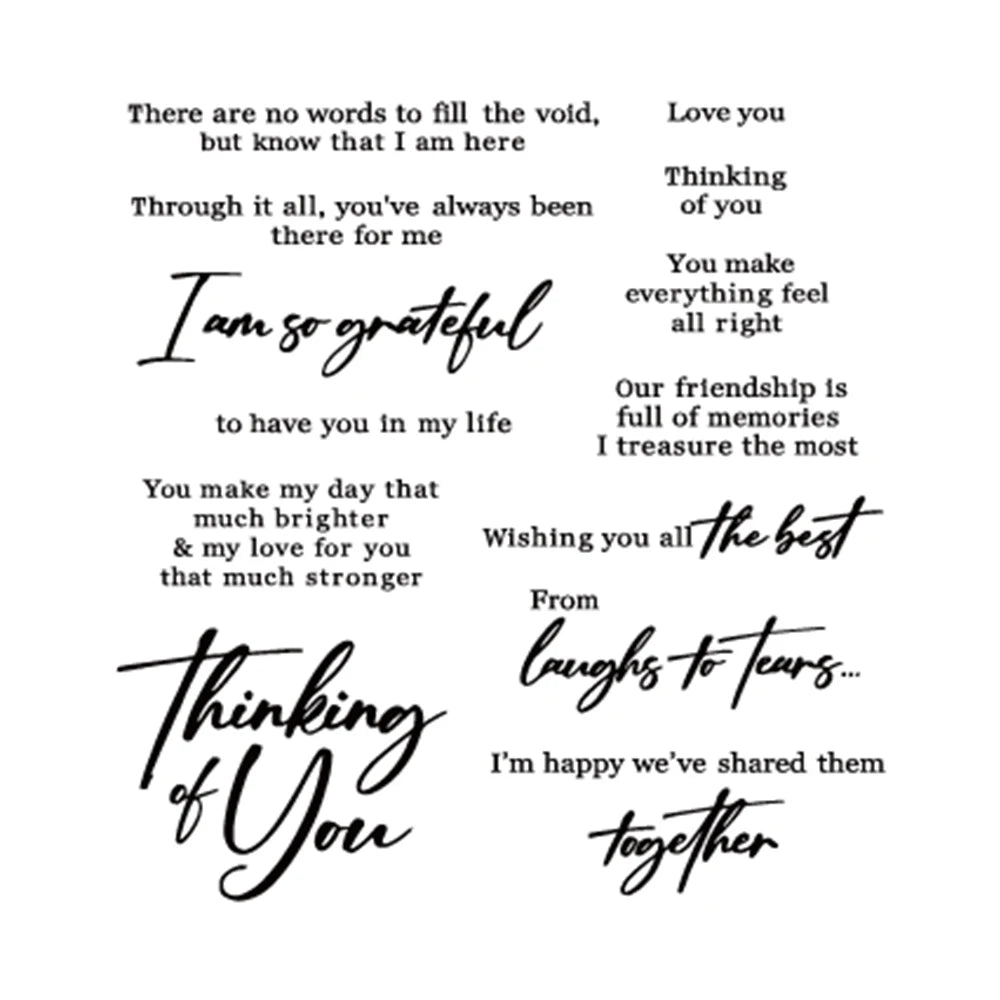 There are no words to fill the void,
but know that I am here
Through it all, you've always been
there for me
I am so grateful
to have you in my life
You make my day that
much brighter
& my love for you
that much stronger
Thinking
of You
Love you
Thinking
of you
You make
everything feel
all right
Our friendship is
full of memories
I treasure the most
Wishing you all the best
From
laughs to tears...
I'm happy we've shared them
together